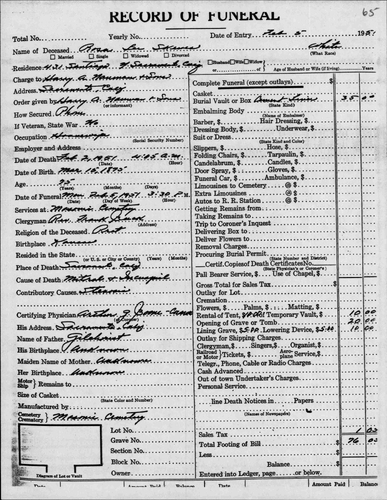 RECORD OF FUNERAL
65
Total No. Yearly No. Date of Entry Feb 5 1951
Name of Deceased
White
(What Race)
Married Single Widowed Divorced Husband Wife Widow of
Age of Husband or Wife (if living) Years
Residence 431 Santiago
Charge to Harry A. Nauman & Sons
Address Sacramento, Calif
Order given by Harry A. Nauman & Sons
(or informant)
How Secured Phone
If Veteran, State War No
Occupation Housewife
(Social Security Number)
Employer and Address
Date of Death Feb 2, 1951 4:05 a.m.
Date of Birth Mar 15, 1875
Age 75
Date of Funeral Mon Feb 5, 1951 2:30 P.M.
(Date) (Day of Week) (Hour)
Services at Masonic Cemetery
Clergyman Rev. Frank
(Address)
Religion of the Deceased Prot
Birthplace Kansas
Resided in the State
(or U.S. or City or County) (Years) (Months)
Place of Death Sacramento, Calif
Cause of Death Mitral
Contributory Causes
Certifying Physician Arthur J.
His Address Sacramento, Calif
Name of Father Gilchrist
His Birthplace Unknown
Maiden Name of Mother Unknown
Her Birthplace Unknown
Motor Ship Remains to
Size of Casket
(State Color and Number)
Manufactured by
Cemetery Crematory Masonic Cemetery
Lot No.
Grave No.
Section No.
Block No.
Owner
Diagram of Lot or Vault
Complete Funeral (except outlays) $
Casket
Burial Vault or Box 35 00
(State Kind)
Embalming Body
(Name of Embalmer)
Barber, $ Hair Dressing, $
Dressing Body, $ Underwear, $
Suit or Dress
(State Kind and Color)
Slippers, $ Hose, $
Folding Chairs, $ Tarpaulin, $
Candelabrum, $ Candles, $
Door Spray, $ Gloves, $
Funeral Car, $ Ambulance, $
Limousines to Cemetery @ $
Extra Limousines @ $
Autos to R. R. Station @ $
Getting Remains from
Taking Remains to
Trip to Coroner's Inquest
Delivering Box to
Deliver Flowers to
Removal Charges
Procuring Burial Permit
(State Physician and District)
Certif. Copies of Death Certificate No.
(State Physician's or Coroner's)
Pall Bearer Service, $ Use of Chapel, $
Gross Total for Sales Tax $
Outlay for Lot
Cremation
Flowers, $ Palms, $ Matting, $
Rental of Tent, Temporary Vault, $ 10 00
Opening of Grave or Tomb 20 00
Lining Grave, $5.00 Lowering Device, $5.00 10 00
Outlay for Shipping Charges
Clergyman, $ Singers, $ Organist, $
Railroad Motor Tickets, $ Aeroplane Service, $
Telegr., Phone, Cable or Radio Charges
Cash Advanced
Out of town Undertaker's Charges
Personal Service
line Death Notices in Papers
(Names of Newspapers)
Sales Tax 1 05
Total Footing of Bill $ 76 05
Less
Balance
Entered into Ledger, page or below.
Amount Paid Balance Amount Paid Balance